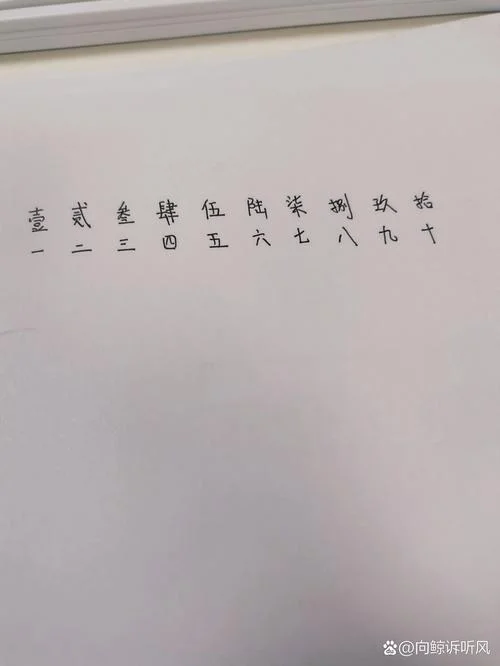 壹 贰 叁 肆 伍 陆 柒 捌 玖 拾
一 二 三 四 五 六 七 八 九 十
@向鲸诉听风